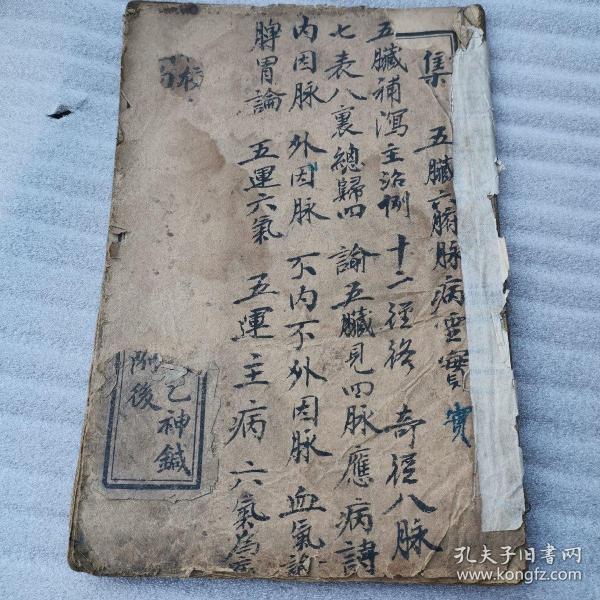 集 五臟六腑脉病虛實 實
五臟補瀉主治例 十二徑絡 奇徑八脉
七表八裏總歸四 論五臟見四脉應病詩
内因脉 外因脉 不内不外因脉 血氣
脾胃論 五運六氣 五運主病 六氣為
乙神鍼
附後
孔夫子旧书网
www.kongfz.com